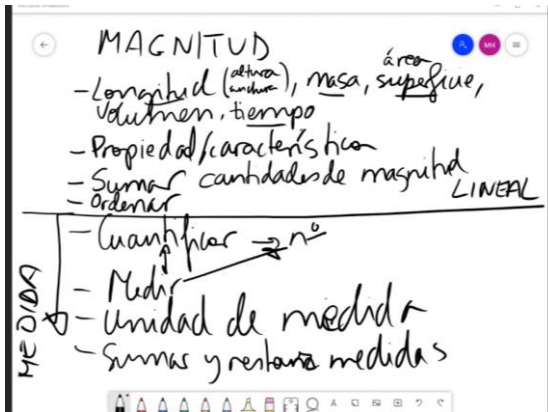 MH
MAGNITUD
- Longitud (altura anchura), masa, área superficie,
volumen, tiempo
- Propiedad/característica
- Sumar cantidades de magnitud
LINEAL
- Ordenar
- Cuantificar → nº
- Medir
- Unidad de medida
- Sumar y restar medidas
MEDIDA